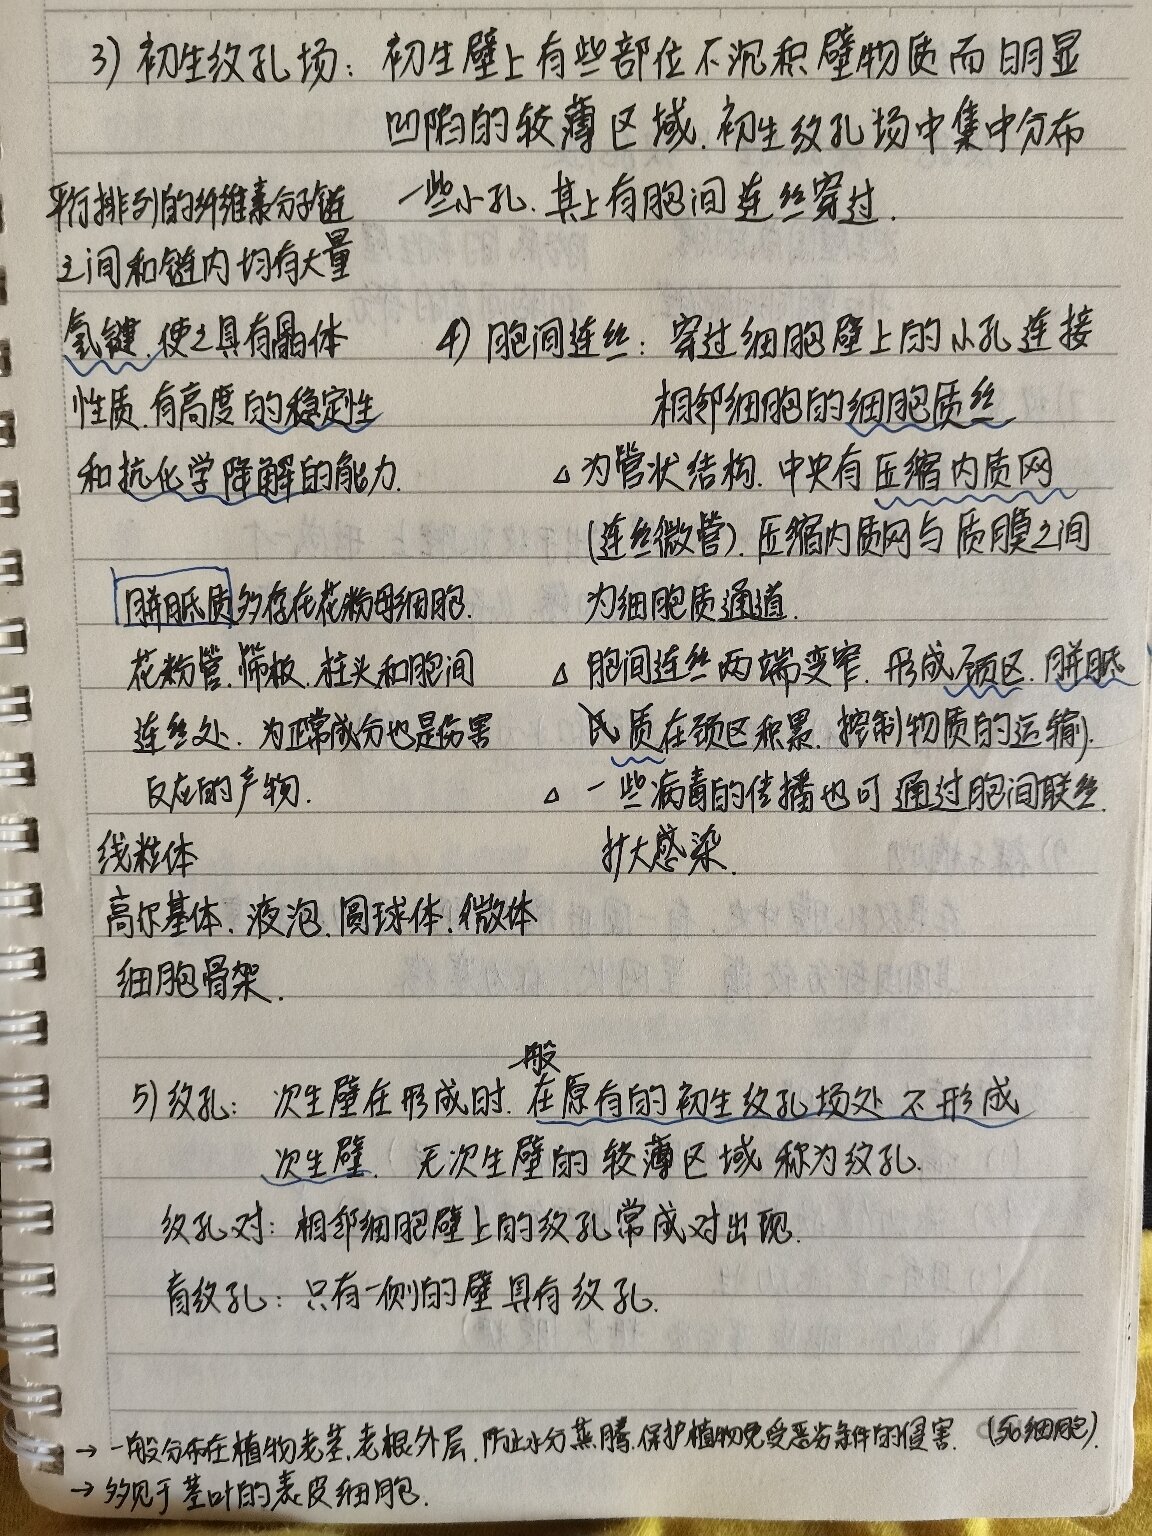 3) 初生纹孔场: 初生壁上有些部位不沉积壁物质而明显
凹陷的较薄区域. 初生纹孔场中集中分布
一些小孔. 其上有胞间连丝穿过.
平行排列的纤维素分子链
之间和链内均有大量
氢键. 使之具有晶体
性质. 有高度的稳定性
和抗化学降解的能力.
4) 胞间连丝: 穿过细胞壁上的小孔连接
相邻细胞的细胞质丝
△ 为管状结构. 中央有压缩内质网
(连丝微管). 压缩内质网与质膜之间
为细胞质通道.
△ 胞间连丝两端变窄. 形成颈区. 胼胝
质在颈区积累. 控制物质的运输).
△ 一些病毒的传播也可通过胞间联丝.
扩大感染.
胼胝质多存在花粉母细胞.
花粉管. 筛板. 柱头和胞间
连丝处. 为正常成分也是伤害
反应的产物.
线粒体
高尔基体. 液泡. 圆球体. 微体
细胞骨架.
一般
5) 纹孔: 次生壁在形成时. 在原有的初生纹孔场处不形成
次生壁. 无次生壁的较薄区域称为纹孔.
纹孔对: 相邻细胞壁上的纹孔常成对出现.
盲纹孔: 只有一侧的壁具有纹孔.
→ 一般分布在植物老茎. 老根外层. 防止水分蒸腾. 保护植物免受恶劣条件的侵害. (死细胞).
→ 多见于茎叶的表皮细胞.